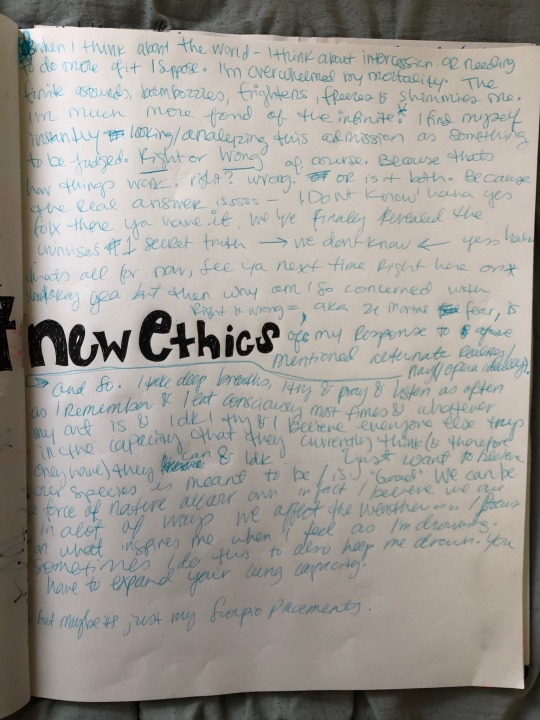 When I think about the world - I think about intercession. OR needing
to do more of it I suppose. I'm overwhelmed by mortality. The
finite astounds, bamboozles, frightens, freezes & shimmies me.
I'm much more fond of the infinite.* I find myself
instantly looking/analyzing this admission as something
to be judged. Right or Wrong of course. Because thats
how things work right? wrong. or is it both. Because
the real answer issss - I Dont Know! haha yes
folx there ya have it, we've finally revealed the
universe's #1 secret truth → we don't know ← yess haha
thats all for now, see ya next time right here on*
okay yea but then why am I so concerned with
Right & wrong, aka
fear, is
my Response to
new Ethics
mentioned alternate
And so. I take deep breaths, I try & pray & listen as often
as I Remember & I eat consciously most times & whatever
my art is & Idk I try & I believe everyone else trys
in the capacity that they currently think (& therefore
only have) they can & Idk I just want to believe
our species is meant to be / is "Good" We can be
a force of nature all our own in fact I believe we are
in alot of ways we affect the weather.... I focus
on what inspires me when I feel as I'm drowning.
Sometimes I do this to also keep me drown. You
have to expand your lung capacity.
but maybe its just my Scorpio Placements.